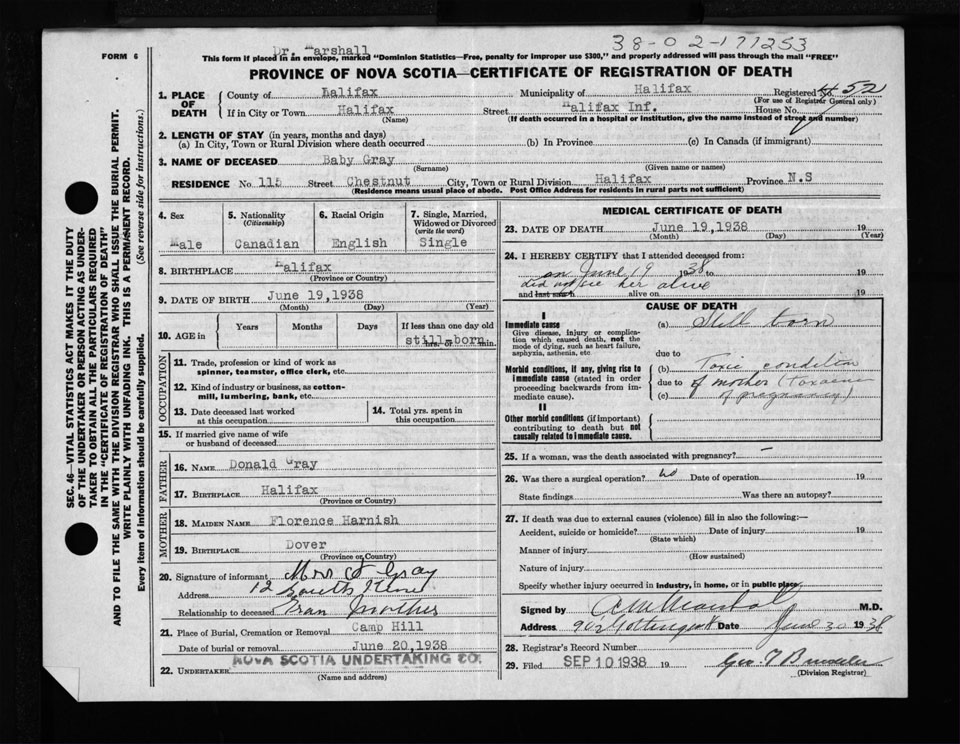 38-02-171253
Dr. Marshall
FORM 6
This form if placed in an envelope, marked "Dominion Statistics—Free, penalty for improper use $300," and properly addressed will pass through the mail "FREE"
PROVINCE OF NOVA SCOTIA—CERTIFICATE OF REGISTRATION OF DEATH
1. PLACE OF DEATH
County of Lalifax Municipality of Halifax Registered No. 52
(For use of Registrar General only)
If in City or Town Halifax Street Halifax Inf. House No.
(Name) (If death occurred in a hospital or institution, give the name instead of street and number)
2. LENGTH OF STAY (in years, months and days)
(a) In City, Town or Rural Division where death occurred (b) In Province (c) In Canada (if immigrant)
3. NAME OF DECEASED Baby Gray
(Surname) (Given name or names)
RESIDENCE No. 115 Street Chestnut City, Town or Rural Division Halifax Province N.S
(Residence means usual place of abode. Post Office Address for residents in rural parts not sufficient)
4. Sex
Male
5. Nationality
(Citizenship)
Canadian
6. Racial Origin
English
7. Single, Married, Widowed or Divorced
(write the word)
Single
8. BIRTHPLACE Halifax
(Province or Country)
9. DATE OF BIRTH June 19,1938
(Month) (Day) (Year)
10. AGE in
Years Months Days If less than one day old
still-born
hrs. or min.
OCCUPATION
11. Trade, profession or kind of work as
spinner, teamster, office clerk, etc.
12. Kind of industry or business, as cotton-
mill, lumbering, bank, etc.
13. Date deceased last worked
at this occupation
14. Total yrs. spent in
this occupation
15. If married give name of wife
or husband of deceased
FATHER
16. NAME Donald Gray
17. BIRTHPLACE Halifax
(Province or Country)
MOTHER
18. MAIDEN NAME Florence Harnish
19. BIRTHPLACE Dover
(Province or Country)
20. Signature of informant Mrs Gray
Address 12 South
Relationship to deceased Gran Mother
21. Place of Burial, Cremation or Removal Camp Hill
Date of burial or removal June 20,1938
22. UNDERTAKER NOVA SCOTIA UNDERTAKING CO.
(Name and address)
MEDICAL CERTIFICATE OF DEATH
23. DATE OF DEATH June 19,1938 19
(Month) (Day) (Year)
24. I HEREBY CERTIFY that I attended deceased from:
on June 19 1938 to 19
did not see her alive
and last saw h alive on 19
CAUSE OF DEATH
I
Immediate cause
Give disease, injury or complica-
tion which caused death, not the
mode of dying, such as heart failure,
asphyxia, asthenia, etc
(a) Still born
due to
Morbid conditions, if any, giving rise to
immediate cause (stated in order
proceeding backwards from im-
mediate cause).
(b) Toxic condition
due to of mother (Toxaemia
(c) of pregnancy)
II
Other morbid conditions (if important)
contributing to death but not
causally related to immediate cause.
25. If a woman, was the death associated with pregnancy? —
26. Was there a surgical operation? no Date of operation 19
State findings Was there an autopsy?
27. If death was due to external causes (violence) fill in also the following:—
Accident, suicide or homicide? Date of injury 19
(State which)
Manner of injury
(How sustained)
Nature of injury
Specify whether injury occurred in industry, in home, or in public place
Signed by Marshall M.D.
Address 902 Gottingen St Date June 20 1938
28. Registrar's Record Number
29. Filed SEP 10 1938 19
(Division Registrar)
SEC. 46—VITAL STATISTICS ACT MAKES IT THE DUTY
OF THE UNDERTAKER OR PERSON ACTING AS UNDER-
TAKER TO OBTAIN ALL THE PARTICULARS REQUIRED
IN THE "CERTIFICATE OF REGISTRATION OF DEATH"
AND TO FILE THE SAME WITH THE DIVISION REGISTRAR WHO SHALL ISSUE THE BURIAL PERMIT.
WRITE PLAINLY WITH UNFADING INK. THIS IS A PERMANENT RECORD.
Every item of Information should be carefully supplied. (See reverse side for instructions.)